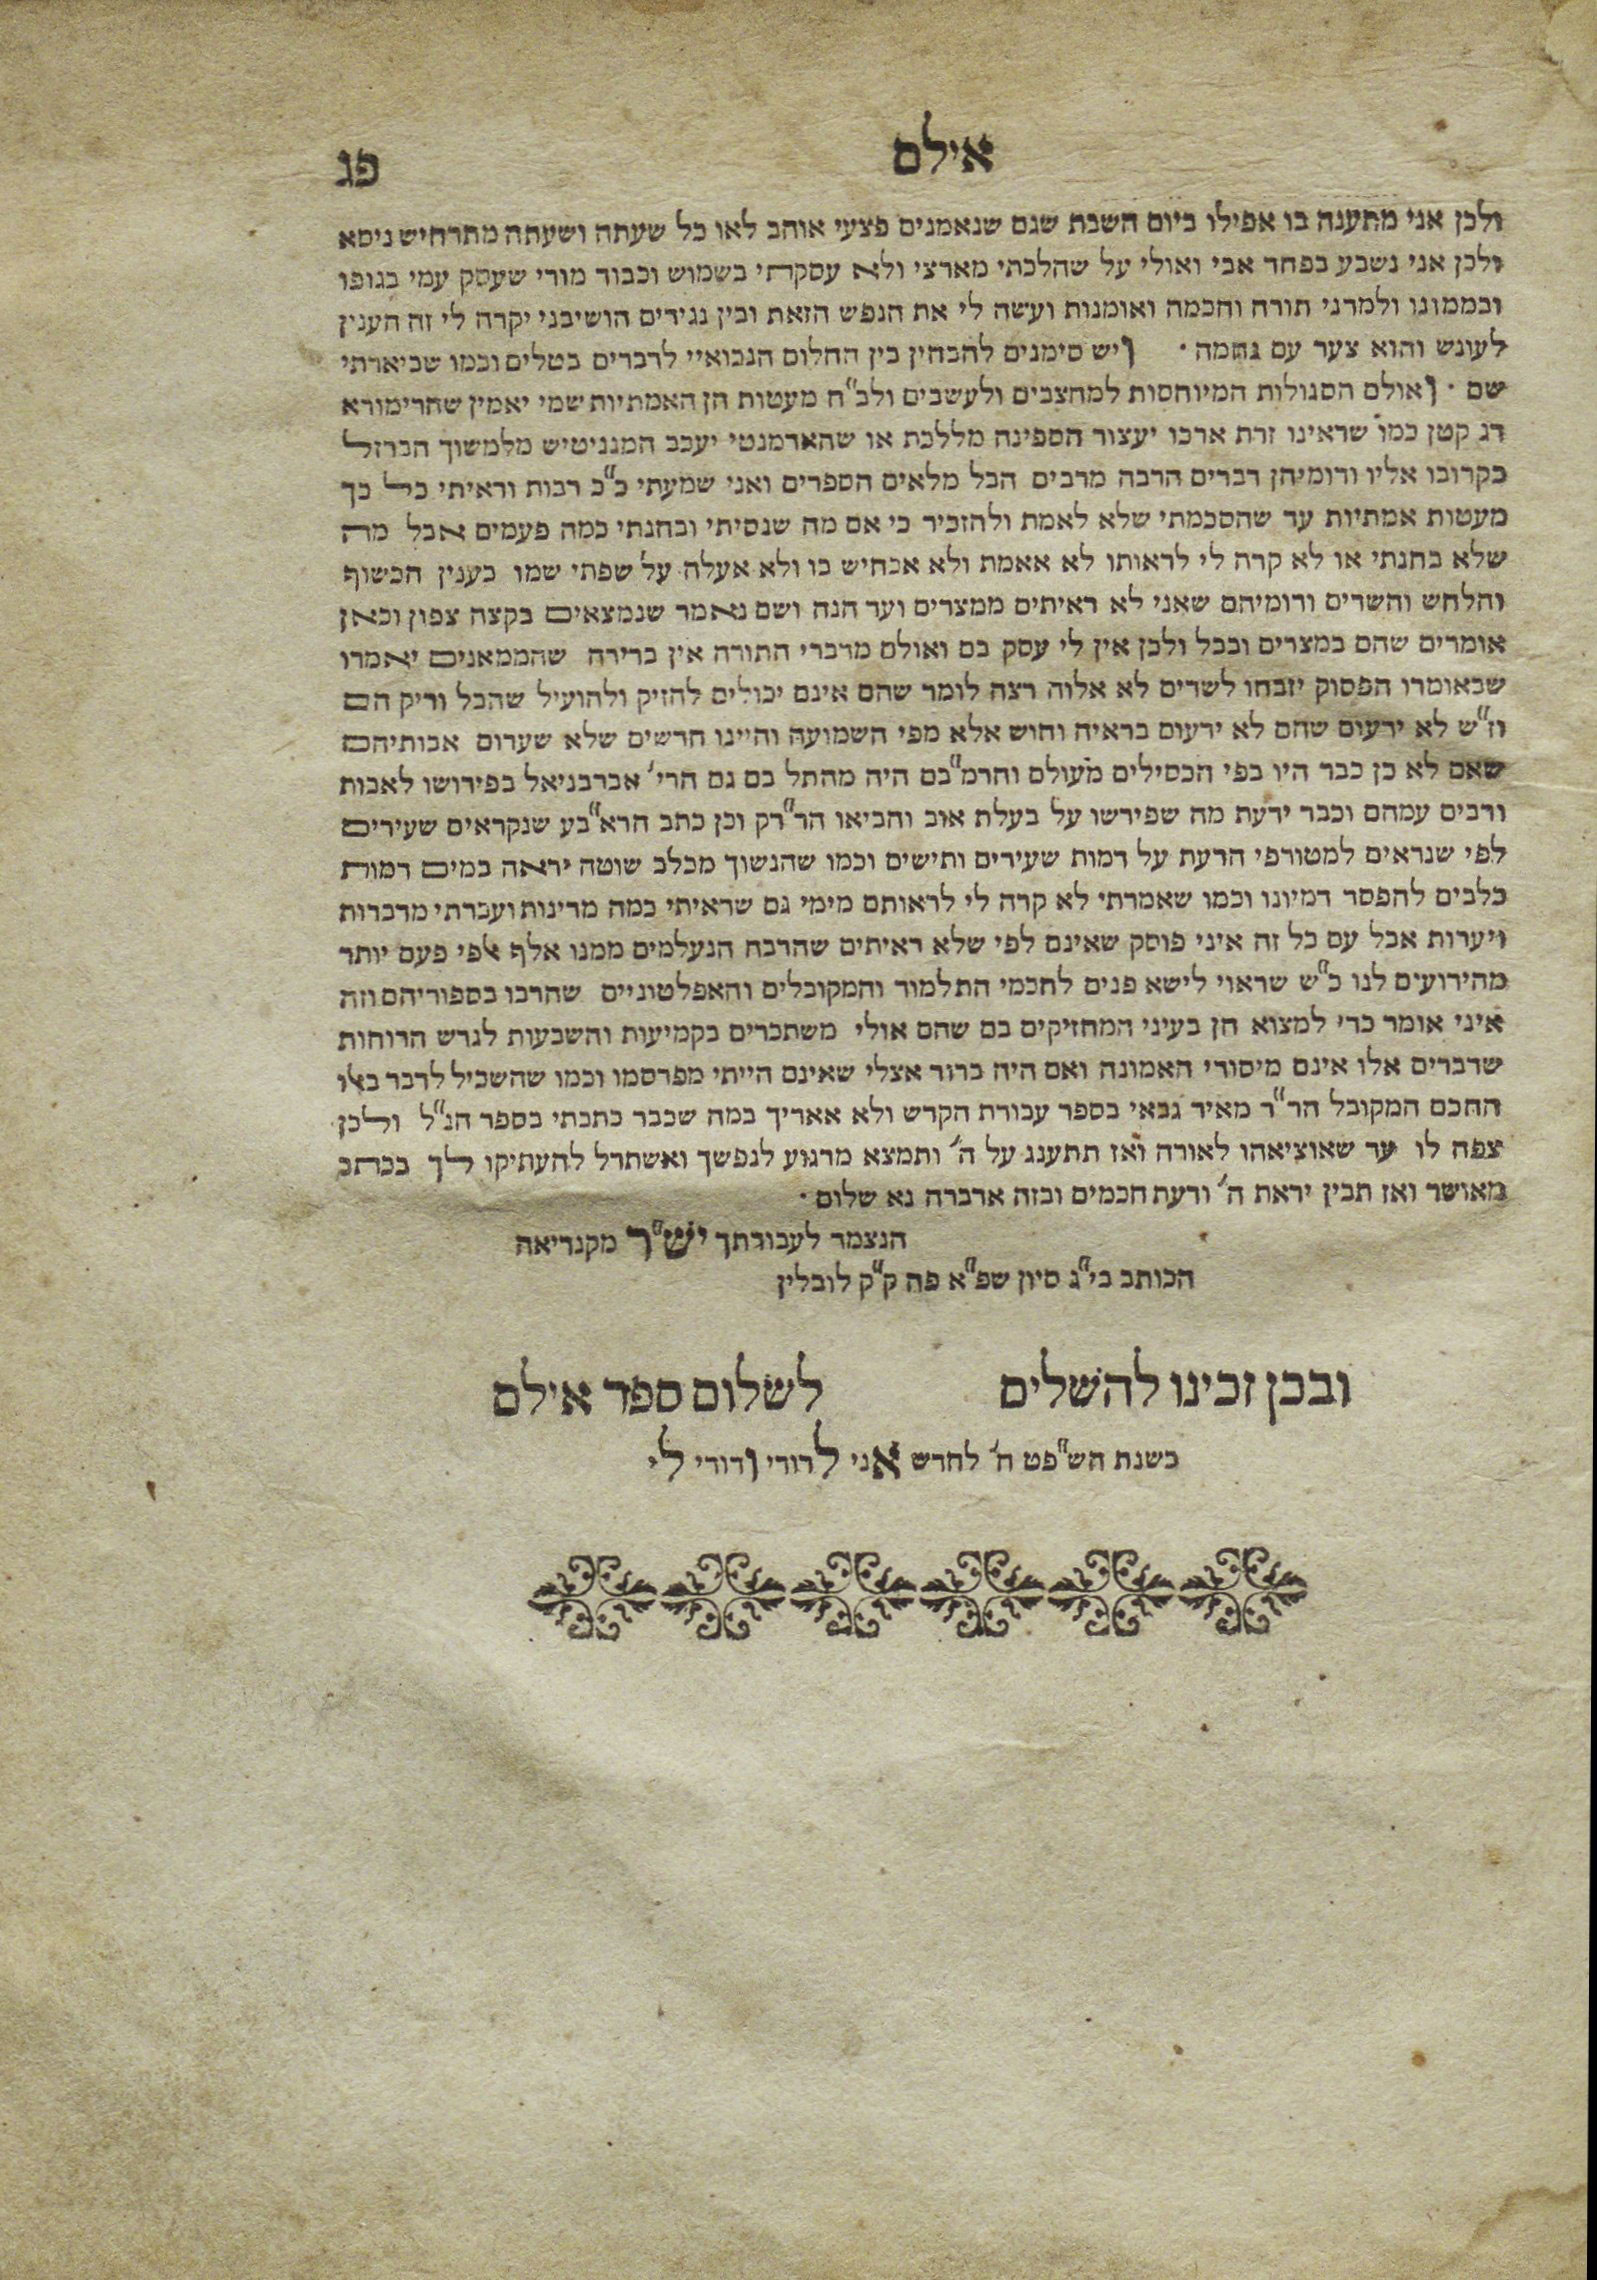 אילם
פג
ולכן אני מתענה בו אפילו ביום השבת שגם שנאמנים פצעי אוהב לאו כל שעתה ושעתה מתרחיש ניסא
ולכן אני נשבע בפחד אבי ואולי על שהלכתי מארצי ולא עסקתי בשמוש וכבוד מורי שעסק עמי בגופו
ובממונו ולמדני תורה וחכמה ואומנות ועשה לי את הנפש הזאת ובין נגידים הושיבני יקרה לי זה הענין
לעונש והוא צער עם נחמה · ויש סימנים להבחין בין החלום הנבואיי לדברים בטלים וכמו שביארתי
שם · ואולם הסגולות המיוחסות למחצבים ולעשבים ולב"ח מעטות הן האמתיות שמי יאמין שהרימורא
דג קטן כמו שראינו זרת ארכו יעצור הספינה מללכת או שהאדמנטי יעכב המגניטיש מלמשוך הברזל
בקרובו אליו ודומיהן דברים הרבה מרבים הבל מלאים הספרים ואני שמעתי כ"כ רבות וראיתי כל כך
מעטות אמתיות עד שהסכמתי שלא לאמת ולהזכיר כי אם מה שנסיתי ובחנתי כמה פעמים אבל מה
שלא בחנתי או לא קרה לי לראותו לא אאמת ולא אכחיש בו ולא אעלה על שפתי שמו כענין הכשוף
והלחש והשדים ודומיהם שאני לא ראיתים ממצרים ועד הנה ושם נאמר שנמצאים בקצה צפון וכאן
אומרים שהם במצרים ובבל ולכן אין לי עסק בם ואולם מדברי התורה אין ברירה שהממאנים יאמרו
שבאומרו הפסוק יזבחו לשדים לא אלוה רצה לומר שהם אינם יכולים להזיק ולהועיל שהבל וריק הם
וז"ש לא ידעום שהם לא ידעום בראיה וחוש אלא מפי השמועה והיינו חדשים שלא שערום אבותיהם
שאם לא כן כבר היו בפי הכסילים מעולם והרמ"בם היה מהתל בם גם הרי' אברבניאל בפירושו לאבות
ורבים עמהם וכבר ידעת מה שפירשו על בעלת אוב והביאו הר"דק וכן כתב הרא"בע שנקראים שעירים
לפי שנראים למטורפי הדעת על דמות שעירים ותישים וכמו שהנשוך מכלב שוטה יראה במים דמות
כלבים להפסד דמיונו וכמו שאמרתי לא קרה לי לראותם מימי גם שראיתי כמה מדינות ועברתי מדברות
ויערות אבל עם כל זה איני פוסק שאינם לפי שלא ראיתים שהרבה הנעלמים ממנו אלף אלפי פעם יותר
מהידועים לנו כ"ש שראוי לישא פנים לחכמי התלמוד והמקובלים והאפלטוניים שהרבו בספוריהם וזה
איני אומר כדי למצוא חן בעיני המחזיקים בם שהם אולי משתכרים בקמיעות והשבעות לגרש הרוחות
שדברים אלו אינם מיסודי האמונה ואם היה ברור אצלי שאינם הייתי מפרסמו וכמו שהשכיל לדבר באו
החכם המקובל הר"ר מאיר גבאי בספר עבודת הקדש ולא אאריך במה שכבר כתבתי בספר הנ"ל ולכן
צפה לו עד שאוציאהו לאורה ואז תתענג על ה' ותמצא מרגוע לנפשך ואשתדל להעתיקו לך בכתב
מאושר ואז תבין יראת ה' ודעת חכמים ובזה אדברה נא שלום ·
הנצמד לעבודתך יש"ר מקנדיאה
הכותב בי"ג סיון שפ"א פה ק"ק לובלין
ובכן זכינו להשלים לשלום ספר אילם
בשנת הש"פט ח' לחדש אני לדודי ודודי לי